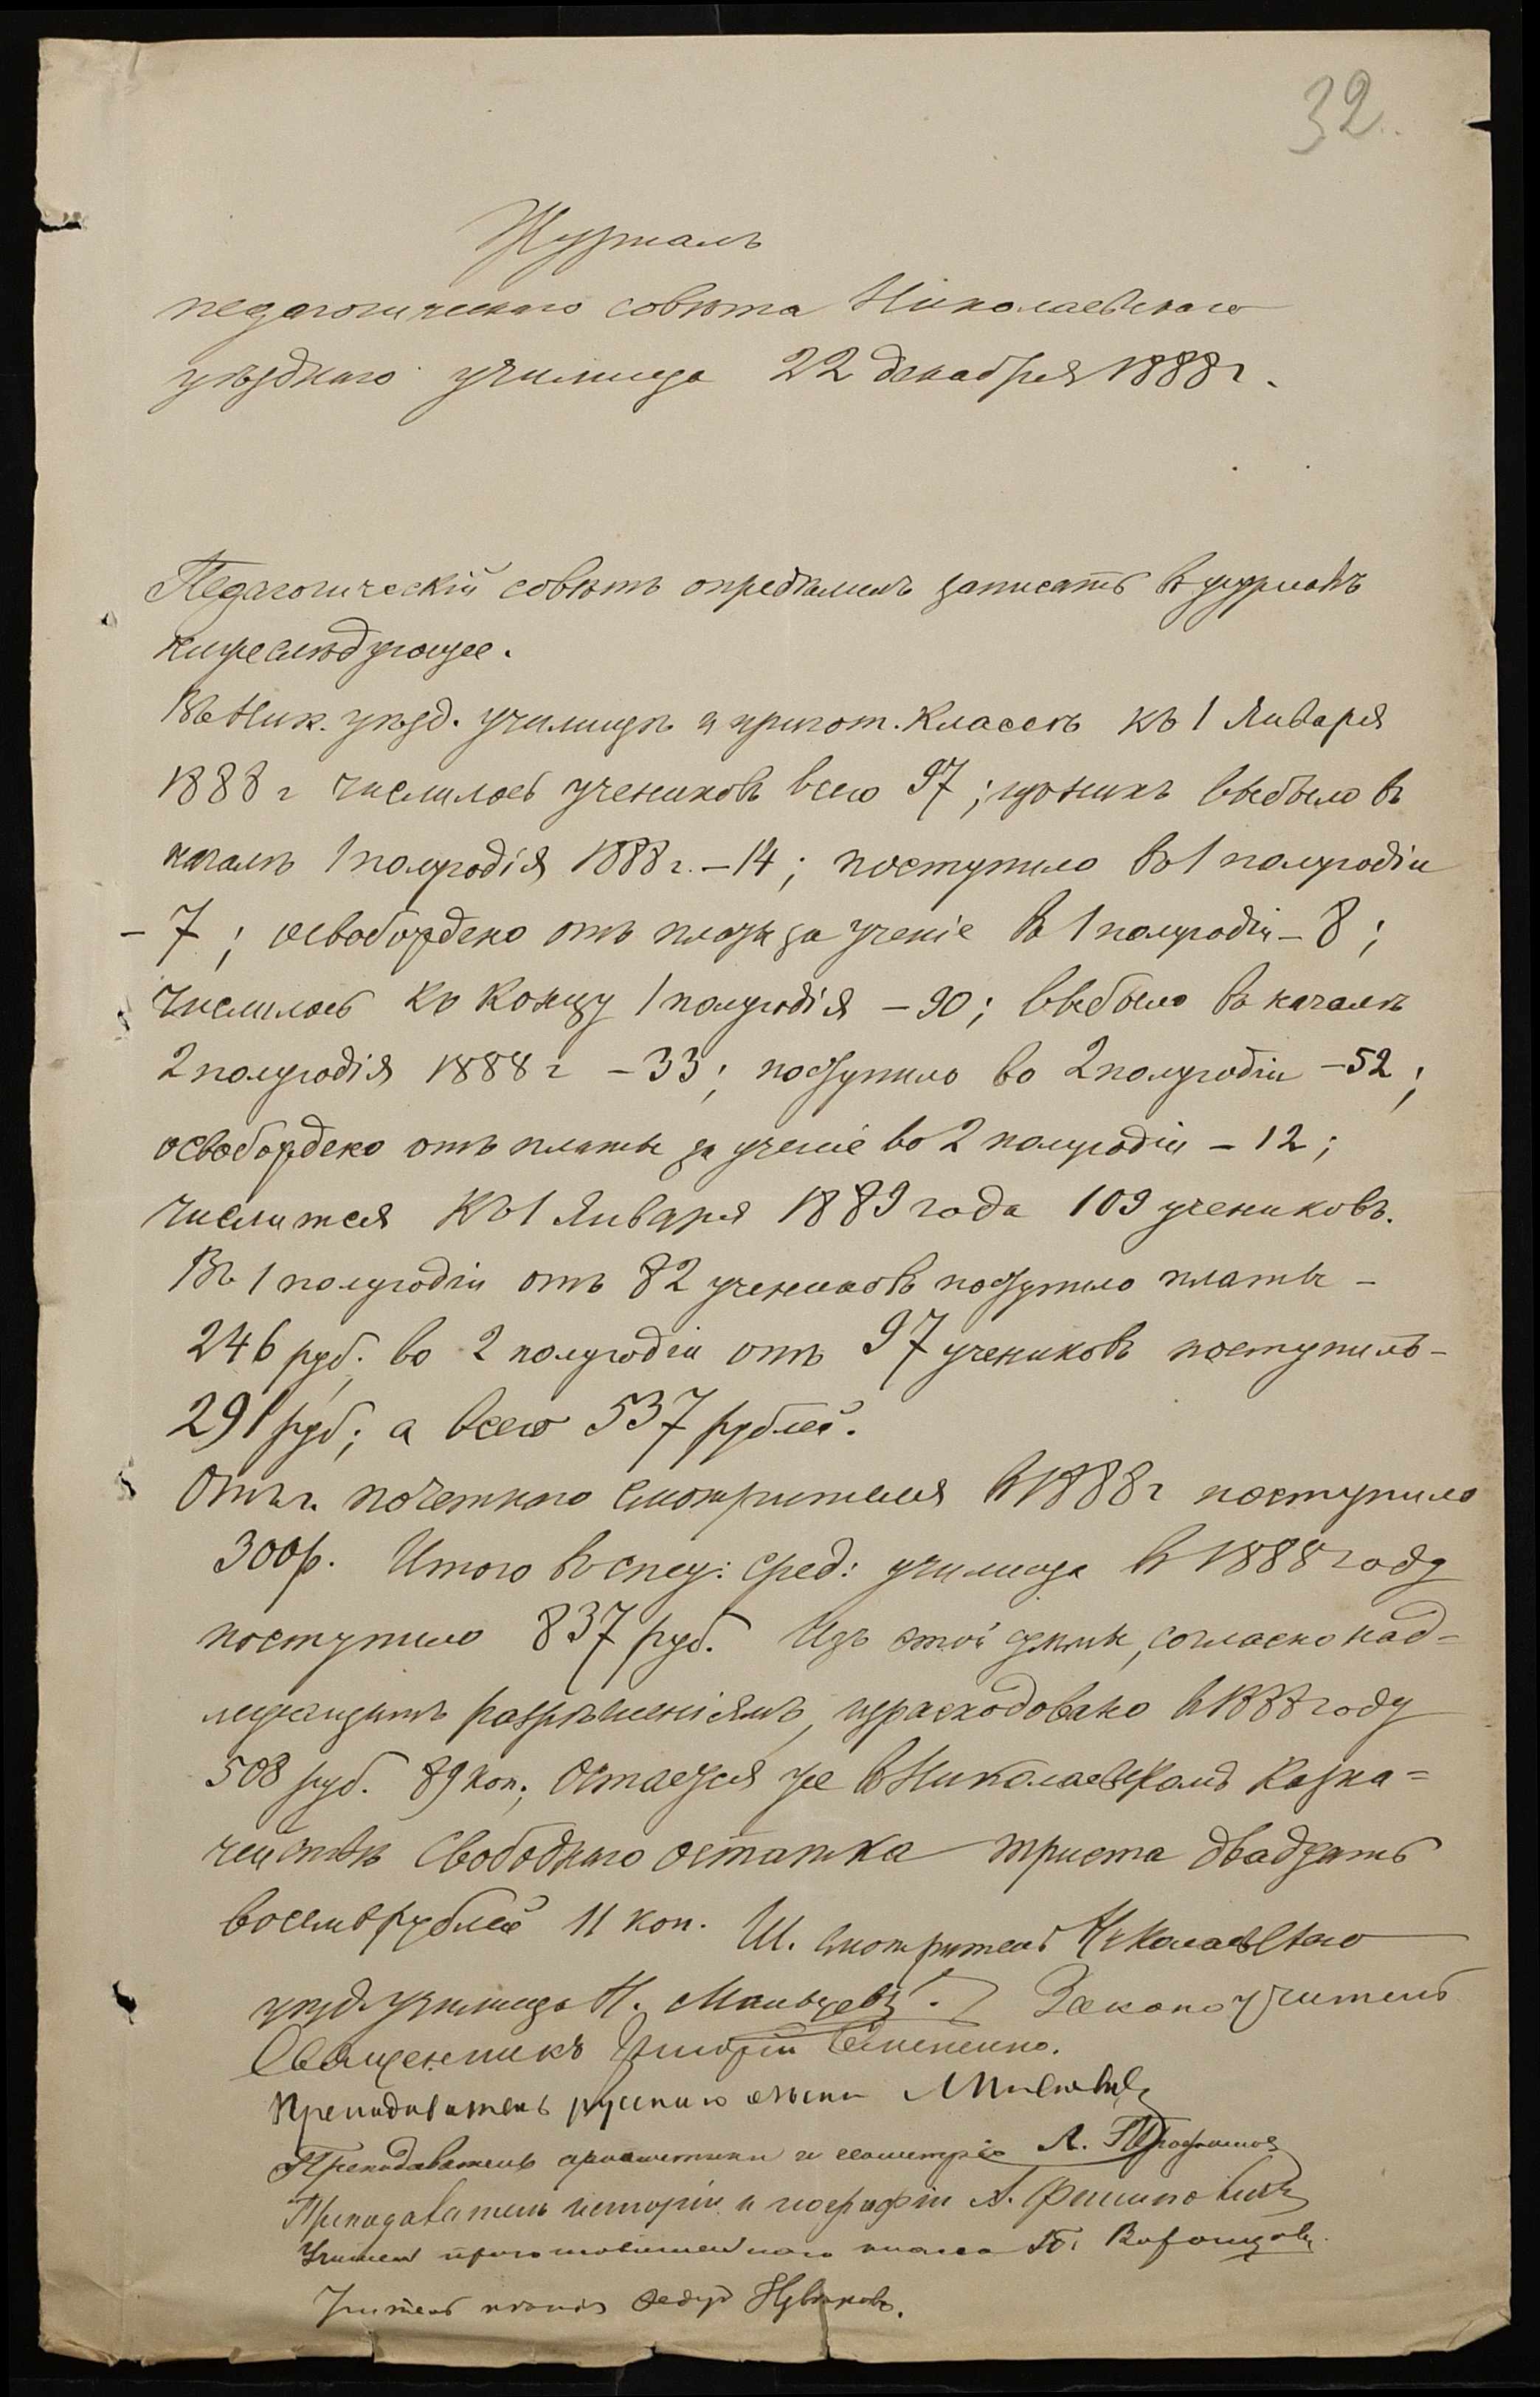 32.
Журналъ
педагогическаго совѣта Николаевскаго
уѣзднаго училища 22 декабря 1888 г.
Педагогическій совѣтъ опредѣлилъ записать въ журналъ
нижеслѣдующее.
Въ Ник. уѣзд. училищѣ и пригот. классѣ къ 1 Января
1888 г числилось учениковъ всего 97; изъ нихъ выбыло въ
началѣ 1 полугодія 1888 г. – 14; поступило въ 1 полугодіи
– 7; освобождено отъ платы за ученіе въ 1 полугодіи – 8;
числилось къ концу 1 полугодія – 90; выбыло въ началѣ
2 полугодія 1888 г – 33; поступило во 2 полугодіи – 52;
освобождено отъ платы за ученіе во 2 полугодіи – 12;
числится къ 1 Января 1889 года 109 учениковъ.
Въ 1 полугодіи отъ 82 учениковъ поступило платы –
246 руб. во 2 полугодіи отъ 97 учениковъ поступило –
291 руб; а всего 537 рублей.
Отъ г. почетнаго смотрителя въ 1888 г поступило
300 р. Итого въ спец: сред: училища въ 1888 году
поступило 837 руб. Изъ этой суммы, согласно над-
лежащимъ разрѣшеніямъ, израсходовано въ 1888 году
508 руб. 89 коп; остается же въ Николаевскомъ казна=
чействѣ свободнаго остатка триста двадцать
восемь рублей 11 коп. Ш. смотритель Николаевскаго
уѣзд. училища Н. Мальцевъ. Законоучитель
Священникъ Григорій Семененко.
Преподаватель русскаго языка
Преподаватель ариѳметики и геометріи А.
Преподаватель исторіи и географіи А. Филиповичъ
Учитель приготовительнаго класса
Учитель пѣнія Ѳедоръ